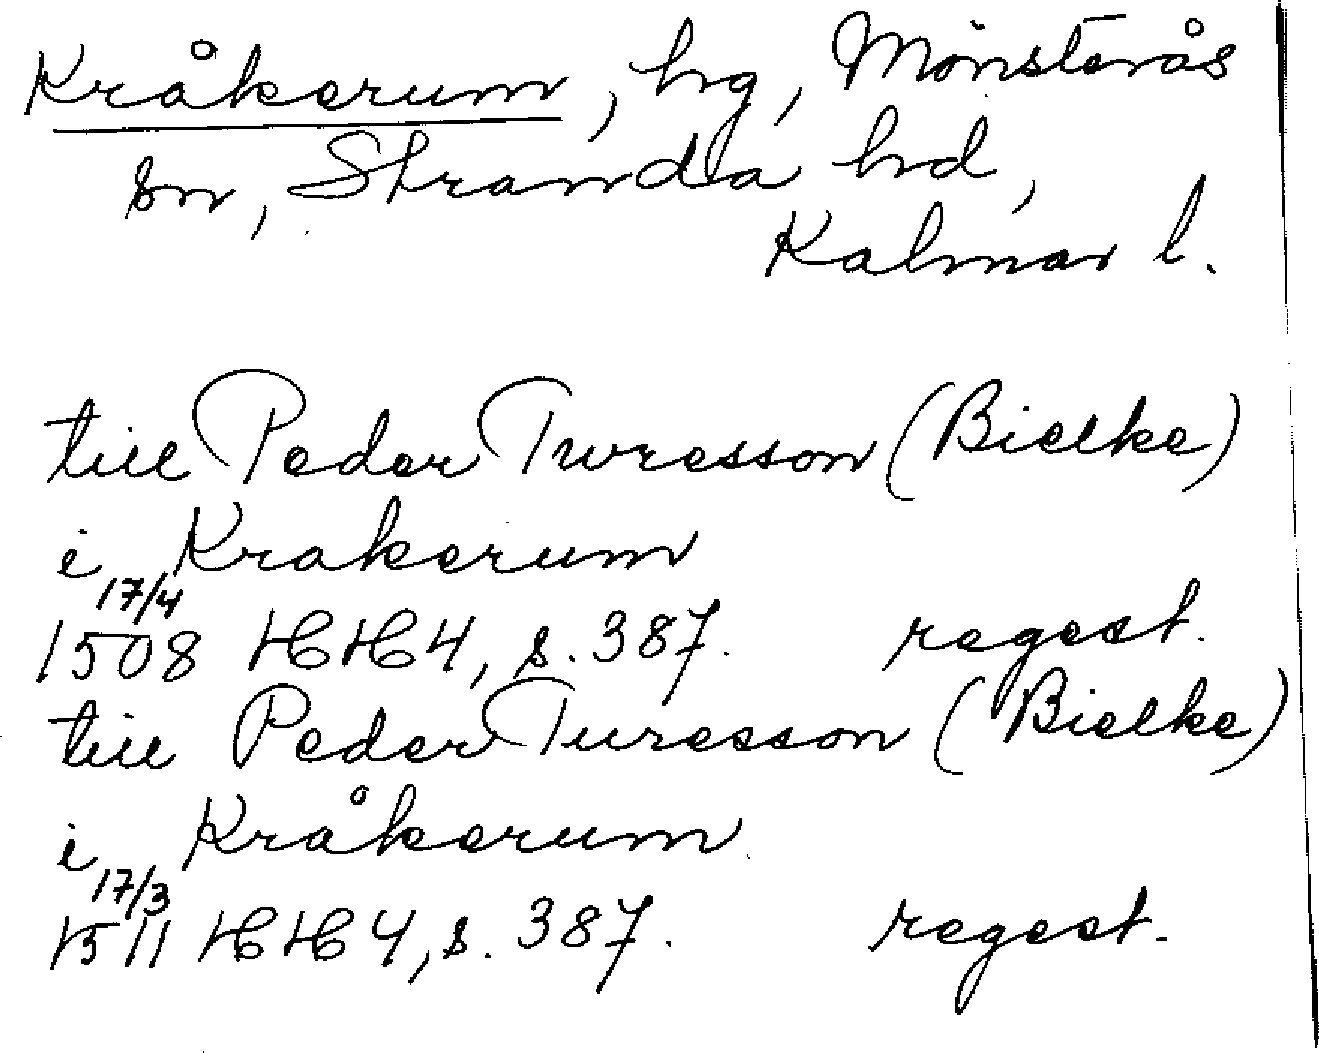 Kråkerum, hg, Mönsterås
sn, Stranda hd,
Kalmar l.
till Peder Twresson (Bielke)
i Krakerum
17/4
1508 HH 4, s. 387. regest.
till Peder Turesson (Bielke)
i Kråkerum
17/3
1511 HH 4, s. 387. regest.